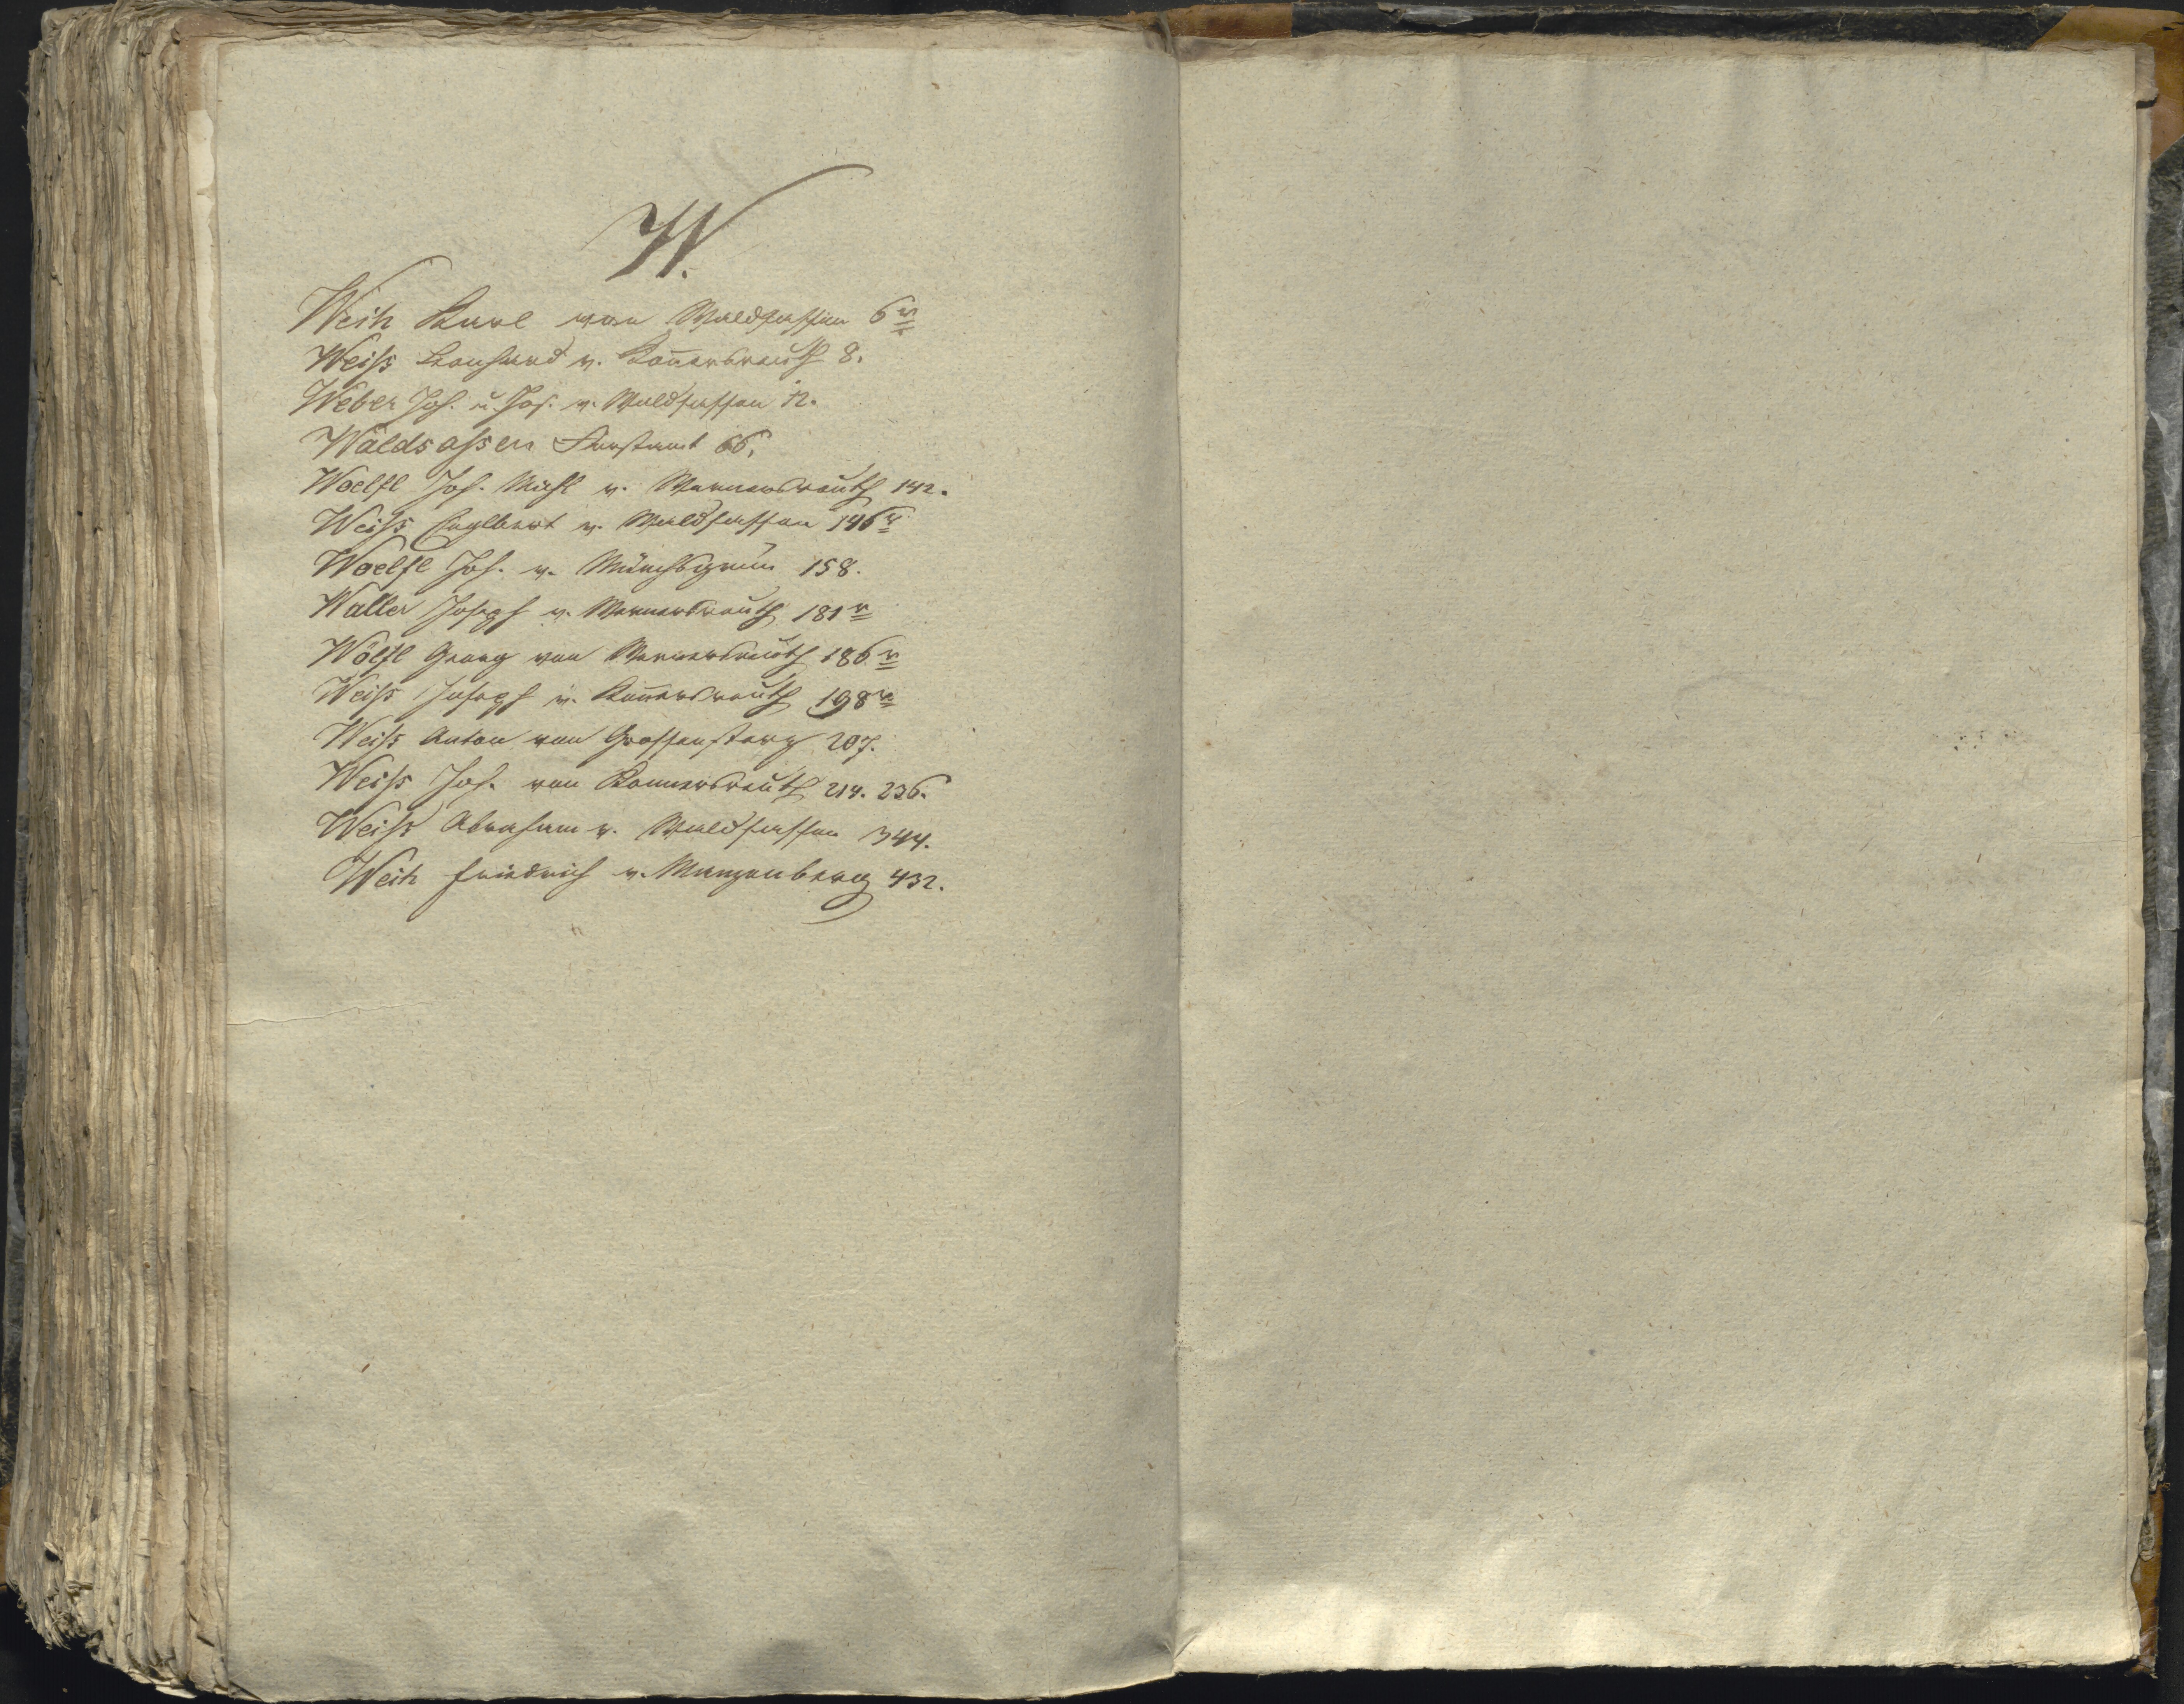 W.
Weih Karl von Waldsassen 6 v
Weiß Leonhard v. Kon̄ersreuth 8.
Weber Joh. u. Jos. v. Waldsassen 12.
Waldsaßen Forstamt 66.
Woelfl Joh. Michl v. Wernersreuth 142.
Weiß Englbert v. Waldsassen 146 v
Woelfl Joh. v. Münchsgrün 158.
Waller Joseph v. Wernersreuth 181 v
Wölfl Georg von Wernersreuth 186 v
Weiß Joseph v. Kon̄ersreuth 198 v
Weiß Anton von Grossensterz 207.
Weiß Joh. von Konnersreuth 214. 236.
Weiß Abraham v. Waldsassen 344.
Weih Friedrich v. Munzenberg 432.